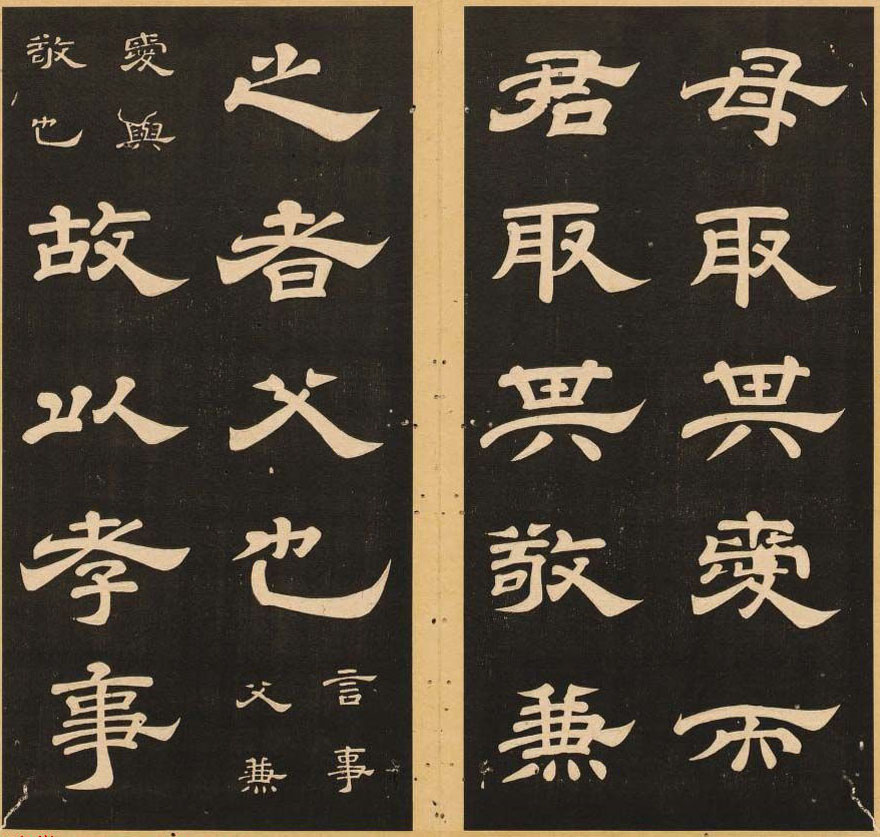 母取其愛而
君取其敬兼
之者父也言事父兼
愛與敬也
故以孝事